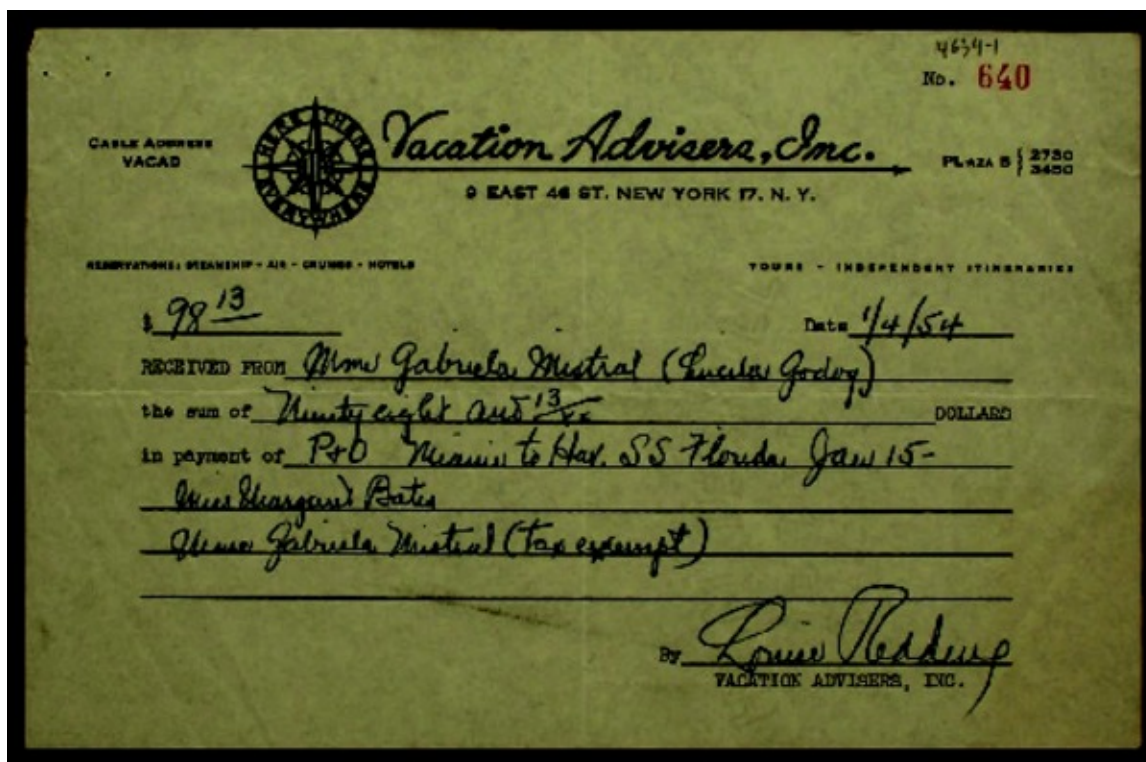 4634-1
No. 640
CABLE ADDRESS
VACAD
HERE THERE EVERYWHERE
Vacation Advisers, Inc.
PLAZA 5 { 2730
3450
9 EAST 46 ST. NEW YORK 17. N. Y.
RESERVATIONS: STEAMSHIP - AIR - CRUISES - HOTELS
TOURS - INDEPENDENT ITINERARIES
$ 98 13
Date 1/4/54
RECEIVED FROM Mme Gabriela Mistral (Lucila Godoy)
the sum of Ninety eight and 13/xx DOLLARS
in payment of P+O Miami to Hav. SS Florida Jan 15-
Miss Margaret Bates
Mme Gabriela Mistral (tax exempt)
By Louise Redding
VACATION ADVISERS, INC.